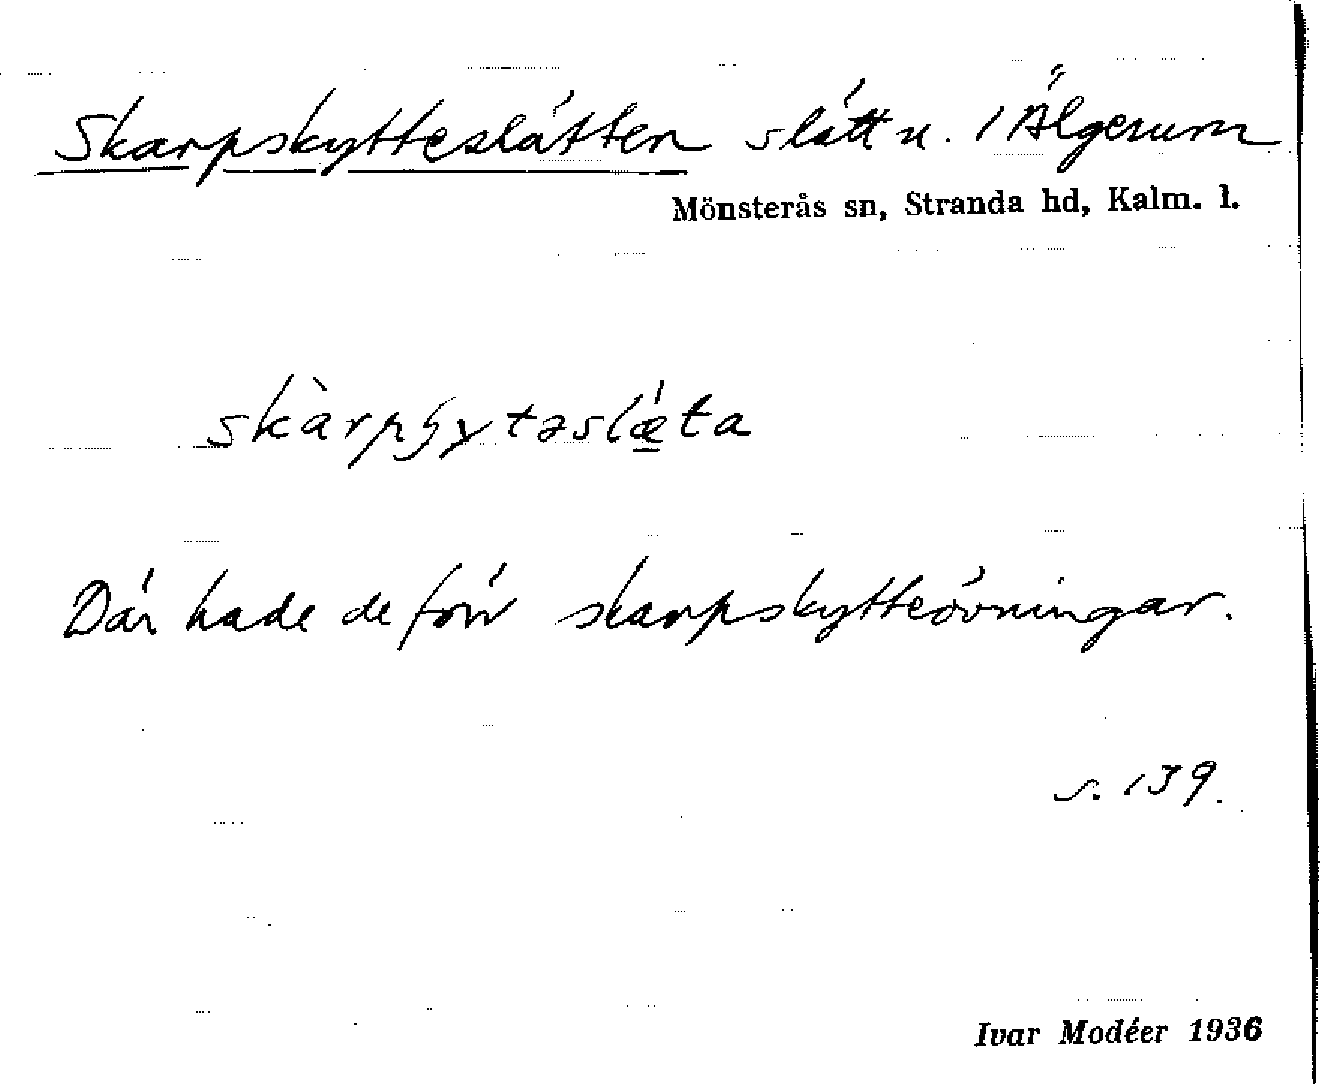 Skarpskytteslätten slätt u. / Älgerum
Mönsterås sn, Stranda hd, Kalm. l.
skàrpʂytəslǽta
Där hade de förr skarpskytteövningar.
s. 139.
Ivar Modéer 1936